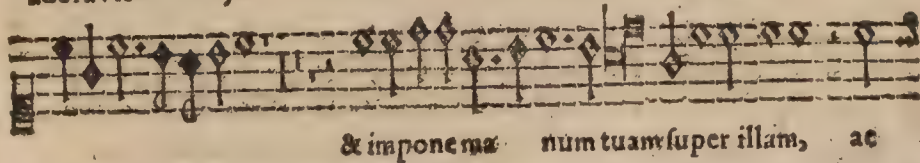 & impone ma num tuam super illam, ac